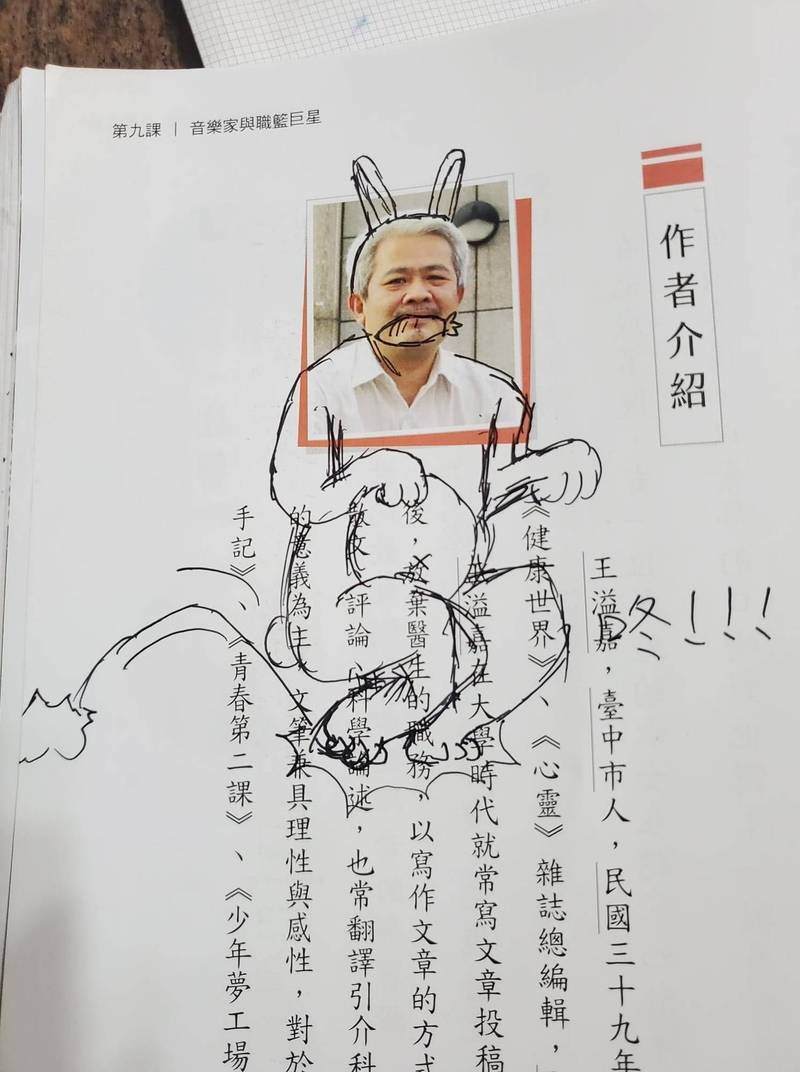 第九課 | 音樂家與職籃巨星
作者介紹
王溢嘉，臺中市人，民國三十九年
咚！！！
《健康世界》、《心靈》雜誌總編輯，
王溢嘉在大學時代就常寫文章投稿
後，放棄醫生的職務，以寫作文章的方式
散文、評論、科學論述，也常翻譯引介科
的意義為主，文筆兼具理性與感性，對於
手記》、《青春第二課》、《少年夢工場